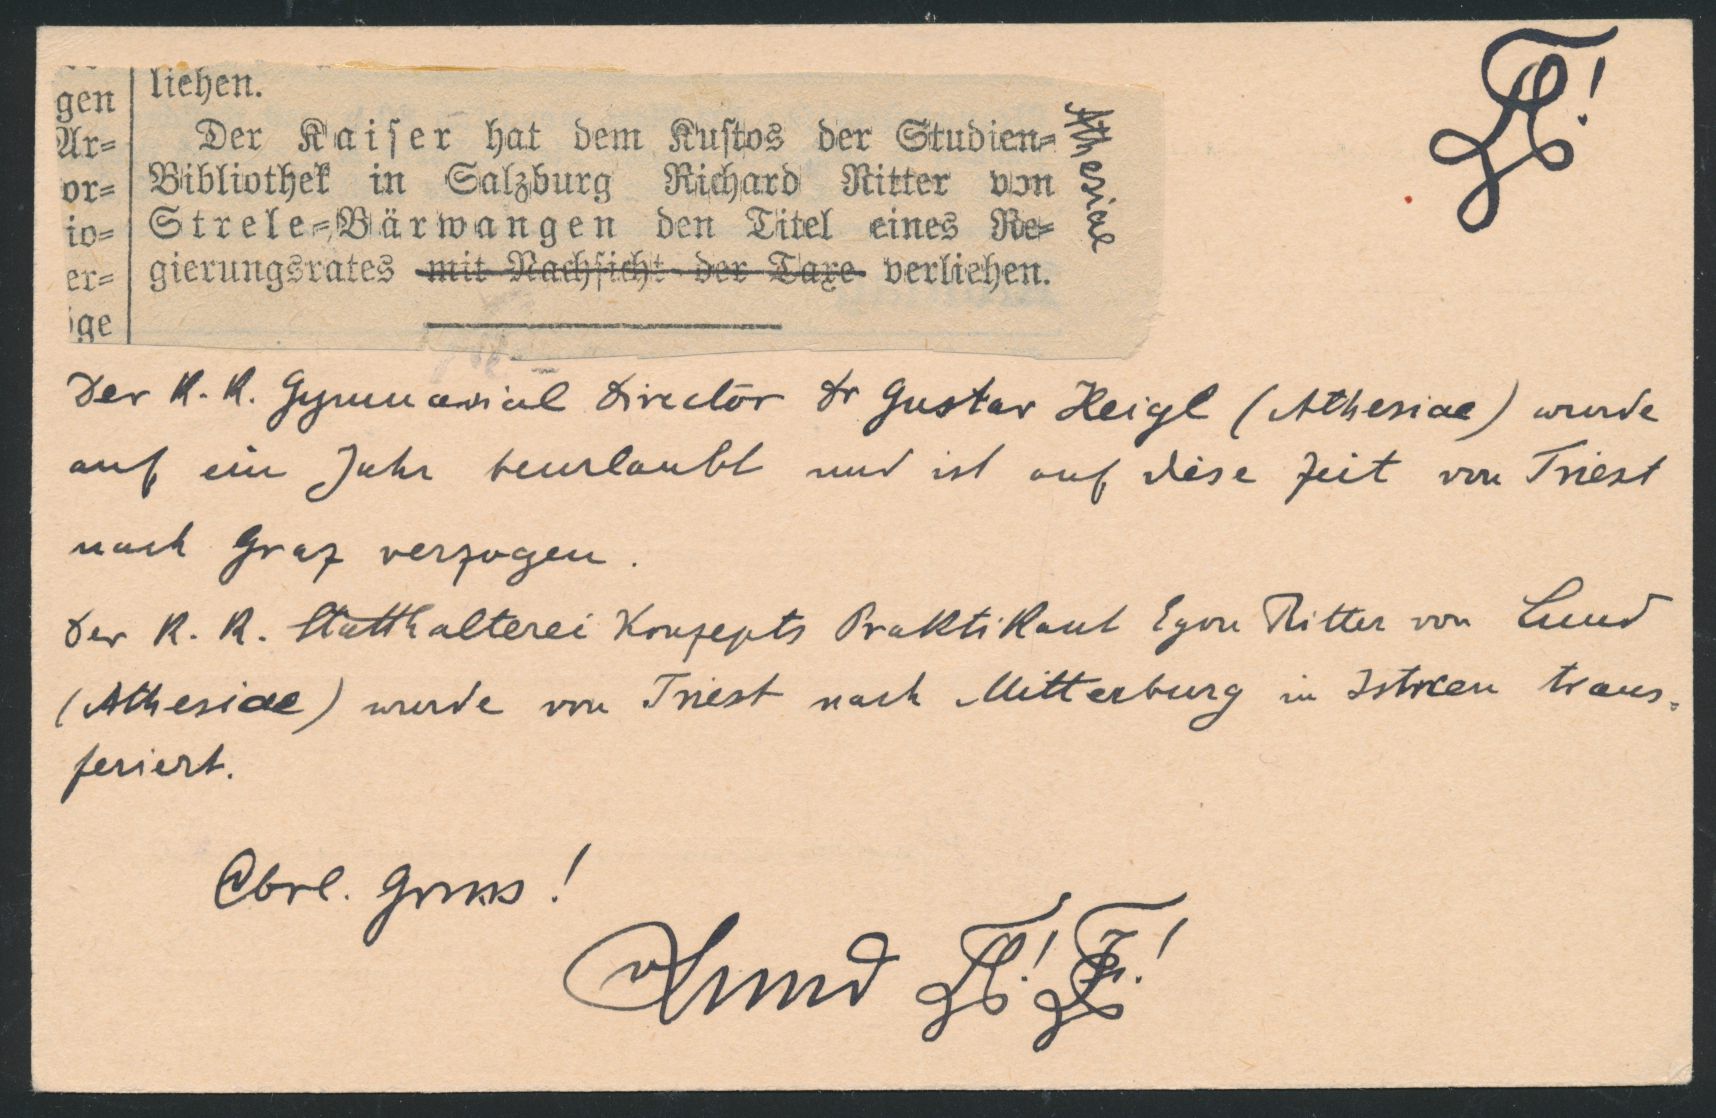 gen
Ar-
or-
io-
er-
ige
liehen.
Der Kaiser hat dem Kustos der Studien-
Bibliothek in Salzburg Richard Ritter von
Strele-Bärwangen den Titel eines Re-
gierungsrates mit Nachsicht der Taxe verliehen.
Athesiae
Der K. K. Gymnasial Director Dr Gustav Heigl (Athesiae) wurde
auf ein Jahr beurlaubt und ist auf diese Zeit von Triest
nach Graz verzogen.
Der K. K. Statthalterei Konzepts Praktikant Egon Ritter von Lund
(Athesiae) wurde von Triest nach Mitterburg in Istrien trans-
feriert.
Cbrl. Gruss!
v Lund